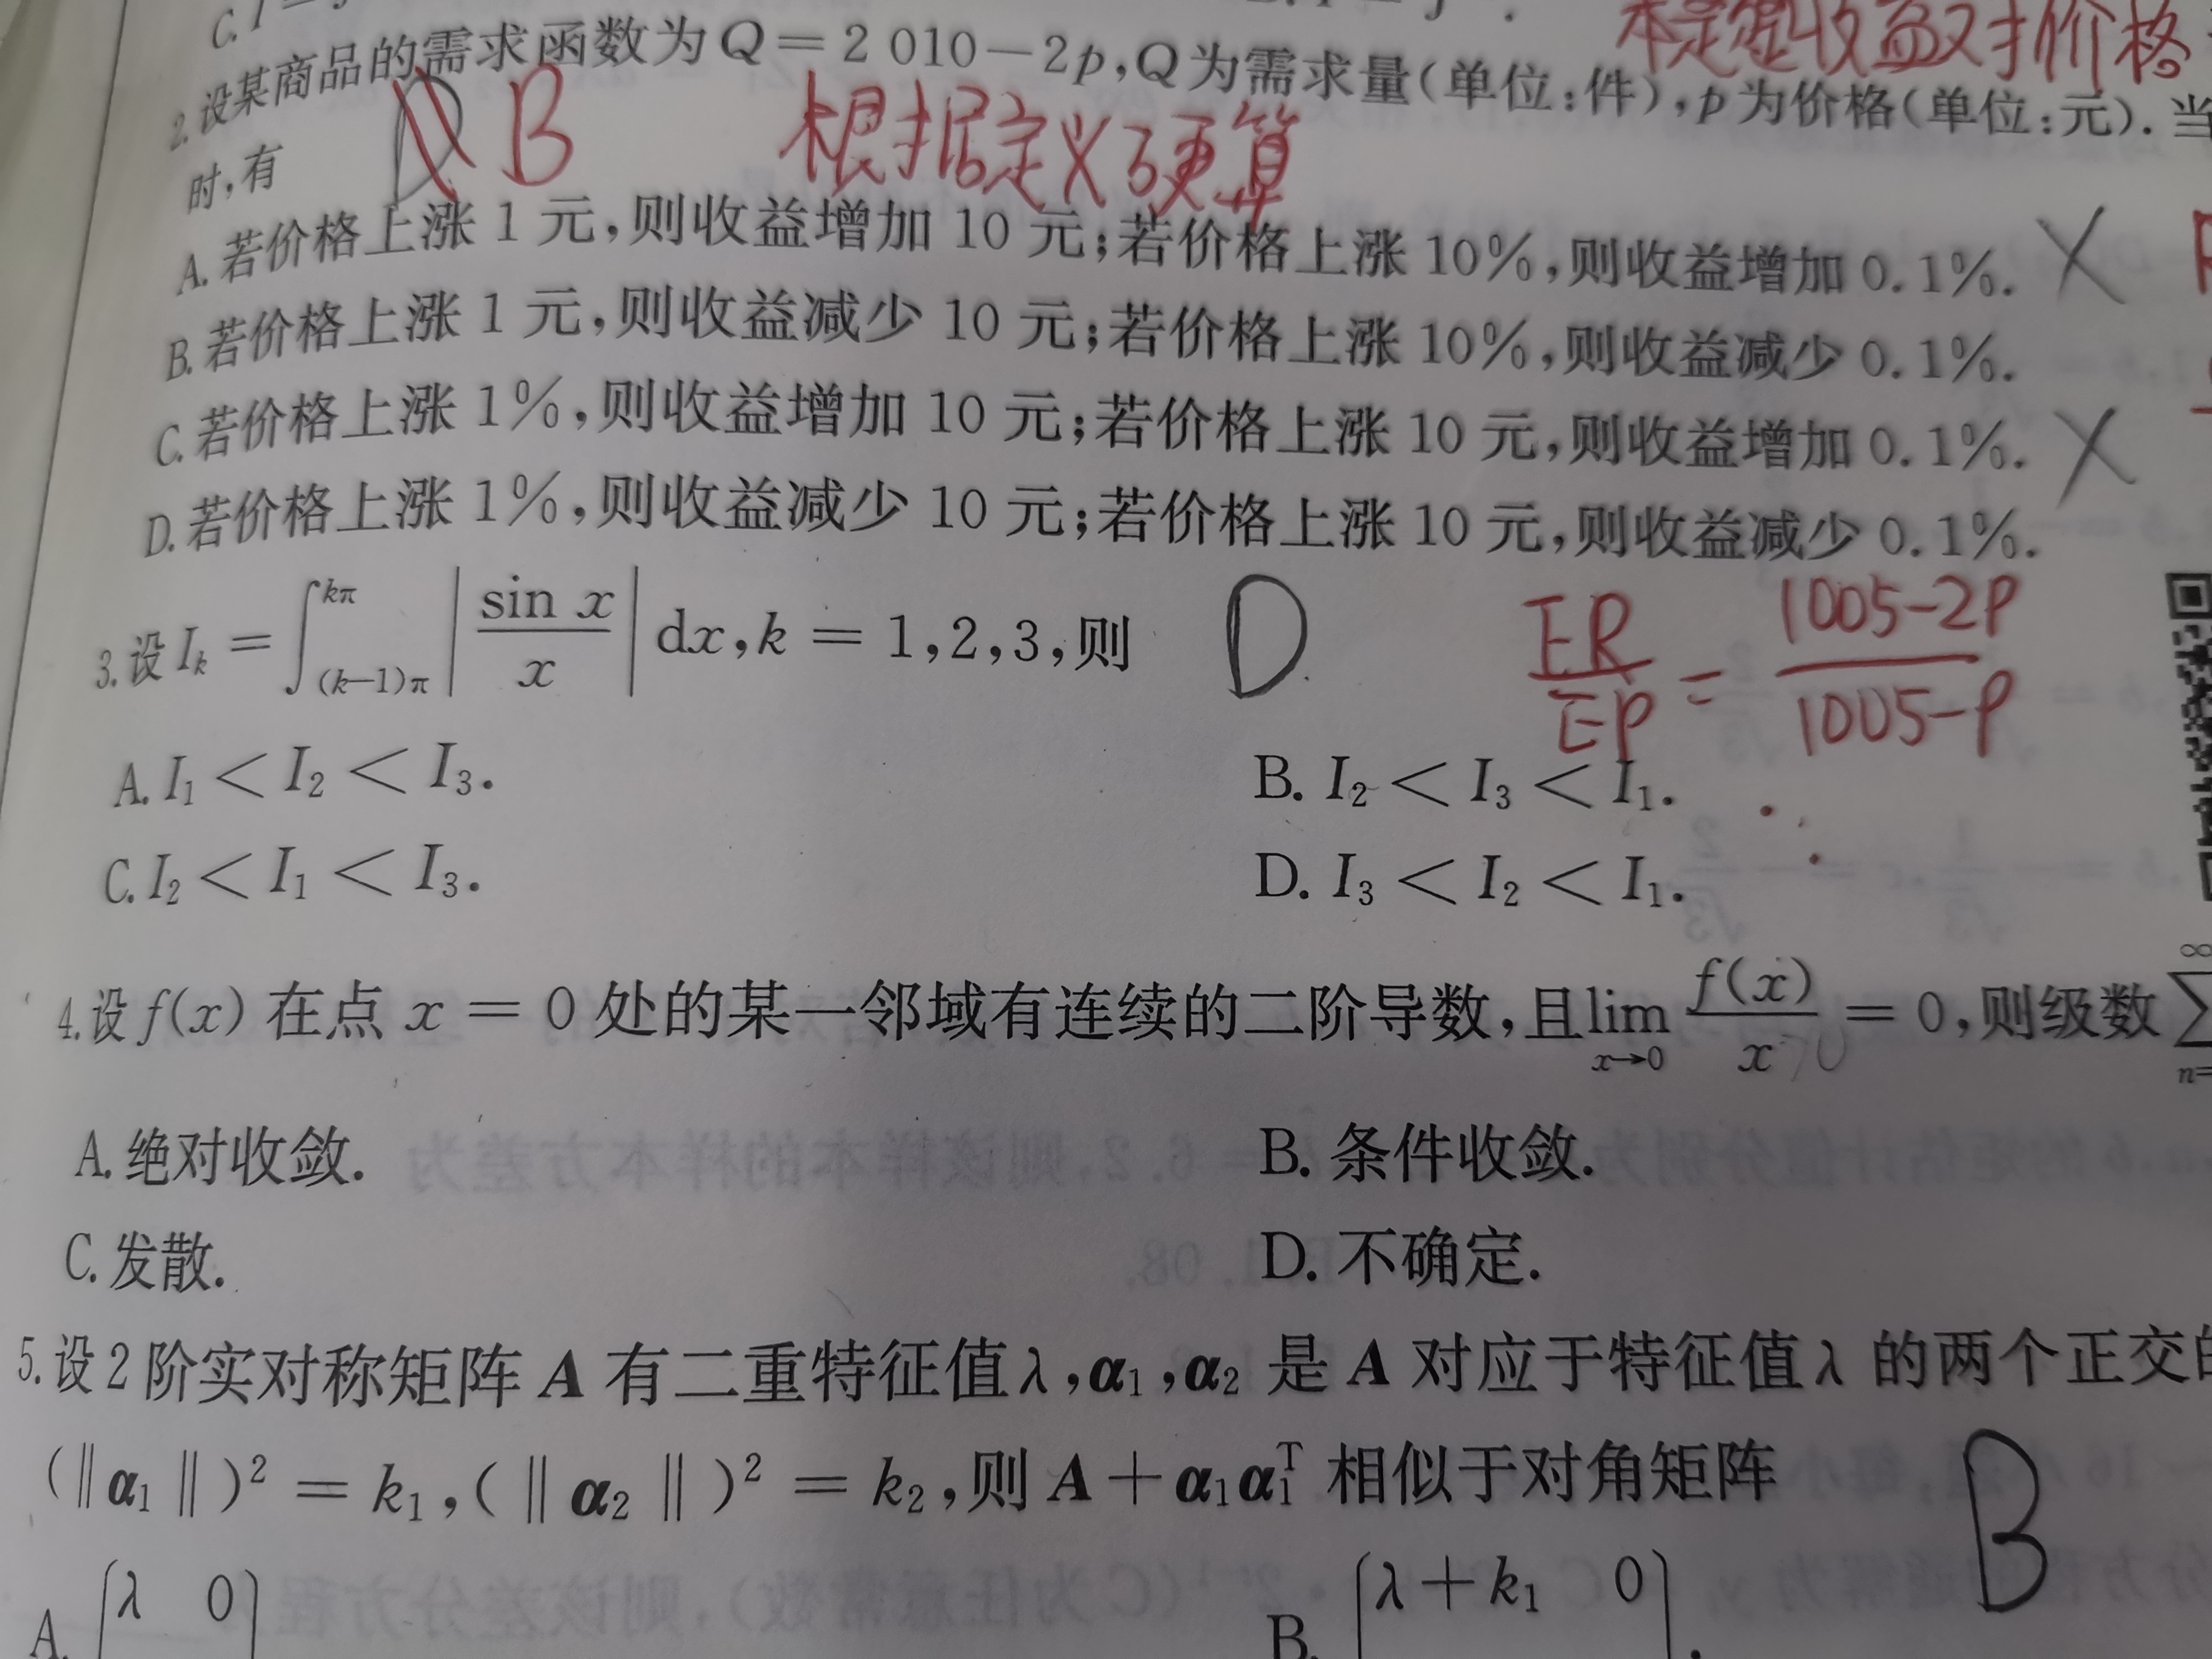 C. I =
本是算收益对价格
2.设某商品的需求函数为Q=2 010-2p,Q为需求量(单位:件),p为价格(单位:元).当
时,有
B
根据定义硬算
A.若价格上涨1元,则收益增加10元;若价格上涨10%,则收益增加0.1%. ×
B.若价格上涨1元,则收益减少10元;若价格上涨10%,则收益减少0.1%.
C.若价格上涨1%,则收益增加10元;若价格上涨10元,则收益增加0.1%. ×
D.若价格上涨1%,则收益减少10元;若价格上涨10元,则收益减少0.1%.
3.设 I_k = ∫_{(k-1)π}^{kπ} |sin x / x| dx, k = 1,2,3,则 D
ER/EP = (1005-2P)/(1005-P)
A. I₁ < I₂ < I₃. B. I₂ < I₃ < I₁.
C. I₂ < I₁ < I₃. D. I₃ < I₂ < I₁.
4.设f(x)在点x=0处的某一邻域有连续的二阶导数,且lim_{x→0} f(x)/x = 0,则级数∑
A.绝对收敛. B.条件收敛.
C.发散. D.不确定.
5.设2阶实对称矩阵A有二重特征值λ,α₁,α₂是A对应于特征值λ的两个正交的
(‖α₁‖)² = k₁,(‖α₂‖)² = k₂,则A+α₁α₁ᵀ相似于对角矩阵 B
A. [λ 0] B. [λ+k₁ 0].